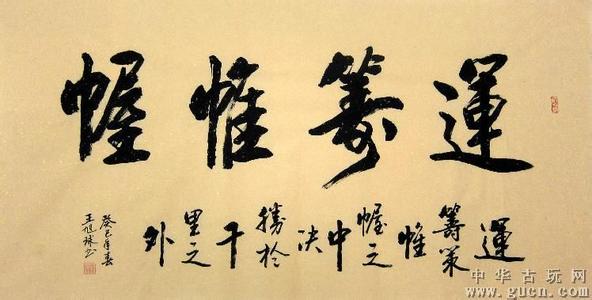 運籌帷幄
運籌策帷幄之中决勝於千里之外
癸巳年春
王旭球书
中华古玩网
www.gucn.com